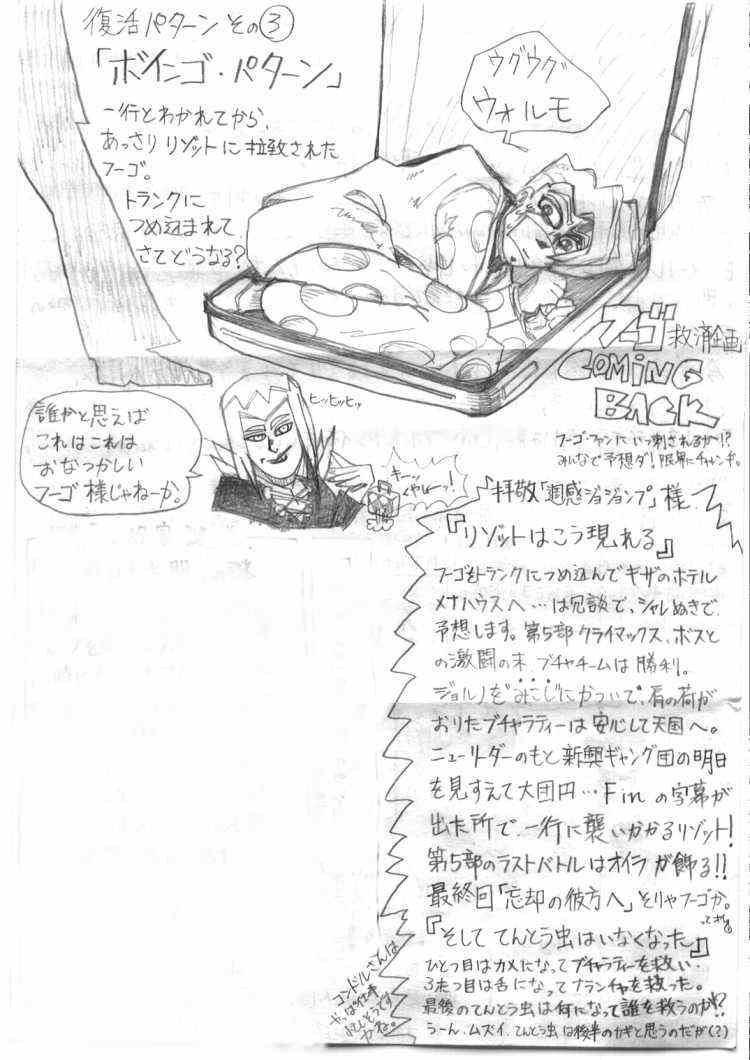 復活パターンその③
「ボインゴ・パターン」
一行とわかれてから、
あっさりリゾットに拉致された
フーゴ。
トランクに
つめ込まれて
さてどうなる?
ウグウグ
ウォルモ
フーゴ救済企画
COMING
BACK
フーゴ・ファンに
みんなで予想ダ!限界にチャレンヂ。
誰かと思えば
これはこれは
おなつかしい
フーゴ様じゃねーか。
ヒッヒッヒッ
キーッ
くやしーっ!
拝敬「週感ジョジョンプ」様
『リゾットはこう現れる』
フーゴをトランクにつめ込んでギザのホテル
メナハウスへ…は冗談で、シャレぬきで
予想します。第5部クライマックス、ボスと
の激闘の末、ブチャチームは勝利。
ジョルノを"みこし"にかついで、肩の荷が
おりたブチャラティーは安心して天国へ。
ニューリーダーのもと新興ギャング団の明日
を見すえて大団円…Finの字幕が
出た所で、一行に襲いかかるリゾット!
第5部のラストバトルはオイラが飾る!!
最終回「忘却の彼方へ」そりゃフーゴか。
『そしててんとう虫はいなくなった』
ひとつ目はカメになってブチャラティーを救い、
ふたつ目は舌になってナランチャを救った。
最後のてんとう虫は何になって誰を救うのか!?
うーん、ムズイ。てんとう虫は後半のカギと思うのだが(?)
コンドルさんは
お仕事
かね。